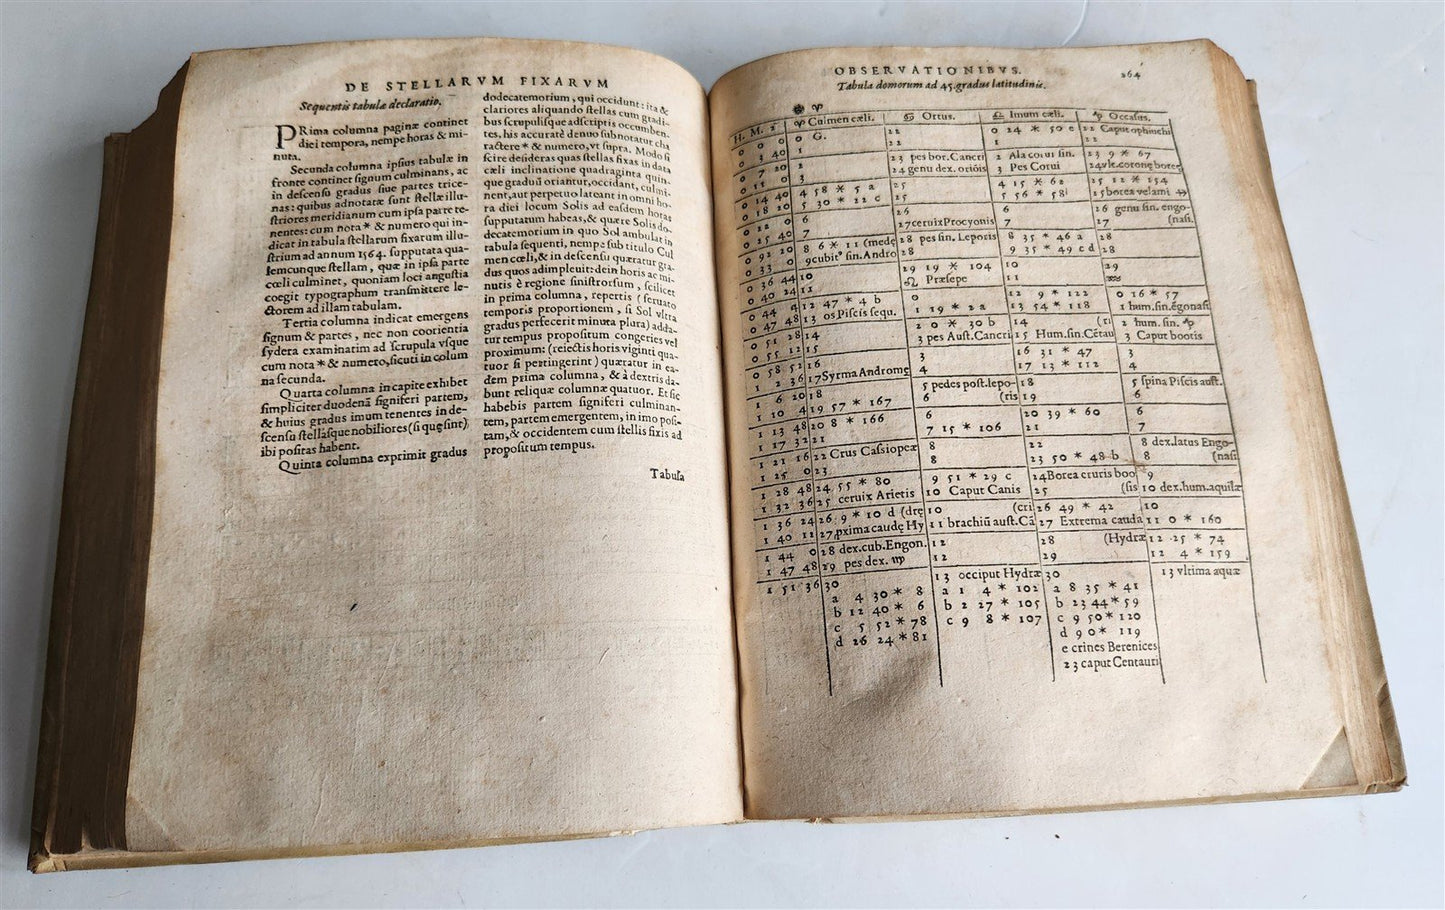 DE STELLARVM FIXARVM
Sequentis tabulæ declaratio.
PRima columna paginæ continet
diei tempora, nempe horas & mi-
nuta.
Secunda columna ipsius tabulæ in
fronte continet signum culminans, ac
in descensu gradus siue partes trice-
nas: quibus adnotatæ sunt stellæ illu-
striores meridianum cum ipsa parte te-
nentes: cum nota * & numero qui in-
dicat in tabula stellarum fixarum illu-
strium ad annum 1564. supputata qua-
lemcunque stellam, quæ in ipsa parte
cœli culminet, quoniam loci angustia
coegit typographum transmittere le-
ctorem ad illam tabulam.
Tertia columna indicat emergens
signum & partes, nec non coorientia
sydera examinatim ad scrupula vsque
cum nota * & numero, sicuti in colum
na secunda.
Quarta columna in capite exhibet
simpliciter duodenā signiferi partem,
& huius gradus imum tenentes in de-
scensu stellasque nobiliores (si quę sint)
ibi positas habent.
Quinta columna exprimit gradus
dodecatemorium, qui occidunt: ita &
clariores aliquando stellas cum gradi-
bus scrupulisque adscriptis occumben-
tes, his accuratè denuo subnotatur cha
ractere * & numero, vt supra. Modo si
scire desideras quas stellas fixas in data
cœli inclinatione quadraginta quin-
que graduū oriantur, occidant, culmi-
nent, aut perpetuo lateant in omni ho-
ra diei locum Solis ad easdem horas
supputatum habeas, & quære Solis do-
decatemorium in quo Sol ambulat in
tabula sequenti, nempe sub titulo Cul
men cœli, & in descensu quæratur gra-
dus quos adimpleuit: dein horis ac mi-
nutis è regione sinistrorsum, scilicet
in prima columna, repertis (seruato
temporis proportionem, si Sol vltra
gradus perfecerit minuta plura) adda-
tur tempus propositum congeries vel
proximum: (reiectis horis viginti qua-
tuor si pertingerint) quæratur in ea-
dem prima columna, & à dextris da-
bunt reliquæ columnæ quatuor. Et sic
habebis partem signiferi culminan-
tem, partem emergentem, in imo posi-
tam, & occidentem cum stellis fixis ad
propositum tempus.
Tabula
OBSERVATIONIBVS. 264
Tabula domorum ad 45. gradus latitudinis.
♈
H. M. 2 ♈ Culmen cæli. ♋ Ortus. ♎ Imum cæli. ♑ Occasus.
0 0 0 0 G. 22 0 24 * 50 e 22 Caput ophiuchi
0 3 40 1 22 1 22
0 7 20 2 23 pes bor. Cancri 2 Ala corui sin. 23 9 * 67
0 11 0 3 24 genu dex. oriōis 3 Pes Corui 24 vlt. coronę boreę
0 14 40 4 58 * 5 a 25 4 15 * 62 25 12 * 154
0 18 20 5 30 * 22 c 25 5 56 * 58 25 borea velami ↔
0 22 0 6 26 6 26 genu sin. engo-
0 25 40 7 27 ceruix Procyonis 7 27 (nasi.
0 92 20 8 6 * 11 (medę 28 pes sin. Leporis 8 35 * 46 a 28
0 33 0 9 cubitꝰ sin. Andro 28 9 35 * 49 c d 28
0 36 44 10 29 19 * 104 10 29
0 40 24 11 ♌ Præsepe 11 ♒
0 44 4 12 47 * 4 b 0 12 9 * 122 0 16 * 57
0 47 48 13 os Piscis sequ. 1 19 * 2 a 13 54 * 118 1 hum. sin. ęgonasi
0 51 28 14 2 0 * 30 b 14 (ri 2 hum. sin. ♑
0 55 12 15 3 pes Aust. Cancri 15 Hum. sin. Cētau 3 Caput bootis
0 58 51 16 3 16 31 * 47 3
1 2 36 17 Syrma Andromę 4 17 13 * 112 4
1 6 20 18 5 pedes post. lepo- 18 5 spina Piscis aust.
1 10 4 19 57 * 167 6 (ris 19 6
1 13 48 20 8 * 166 6 20 39 * 60 6
1 17 32 21 7 15 * 106 21 7
1 21 16 22 Crus Cassiopeæ 8 22 8 dex. latus Engo-
1 25 0 23 8 23 50 * 48 b 8 (nasi.
1 28 48 24 55 * 80 9 51 * 29 c 24 Borea cruris boo 9
1 32 36 25 ceruix Arietis 10 Caput Canis 25 (tis 10 dex. hum. aquilæ
1 36 24 26 9 * 10 d (drę 10 (cri 26 49 * 42 10
1 40 12 27 pxima caudę Hy 11 brachiū aust. Cā 27 Extrema cauda 11 0 * 160
1 44 0 28 dex. cub. Engon. 12 28 (Hydræ 12 25 * 74
1 47 48 29 pes dex. ♍ 12 29 12 4 * 159
1 51 36 30 13 occiput Hydræ 30 13 vltima aquæ
a 4 30 * 8 a 1 4 * 102 a 8 35 * 41
b 12 40 * 6 b 2 27 * 105 b 23 44 * 59
c 5 52 * 78 c 9 8 * 107 c 9 50 * 120
d 26 24 * 81 d 9 0 * 119
e crines Berenices
23 caput Centauri